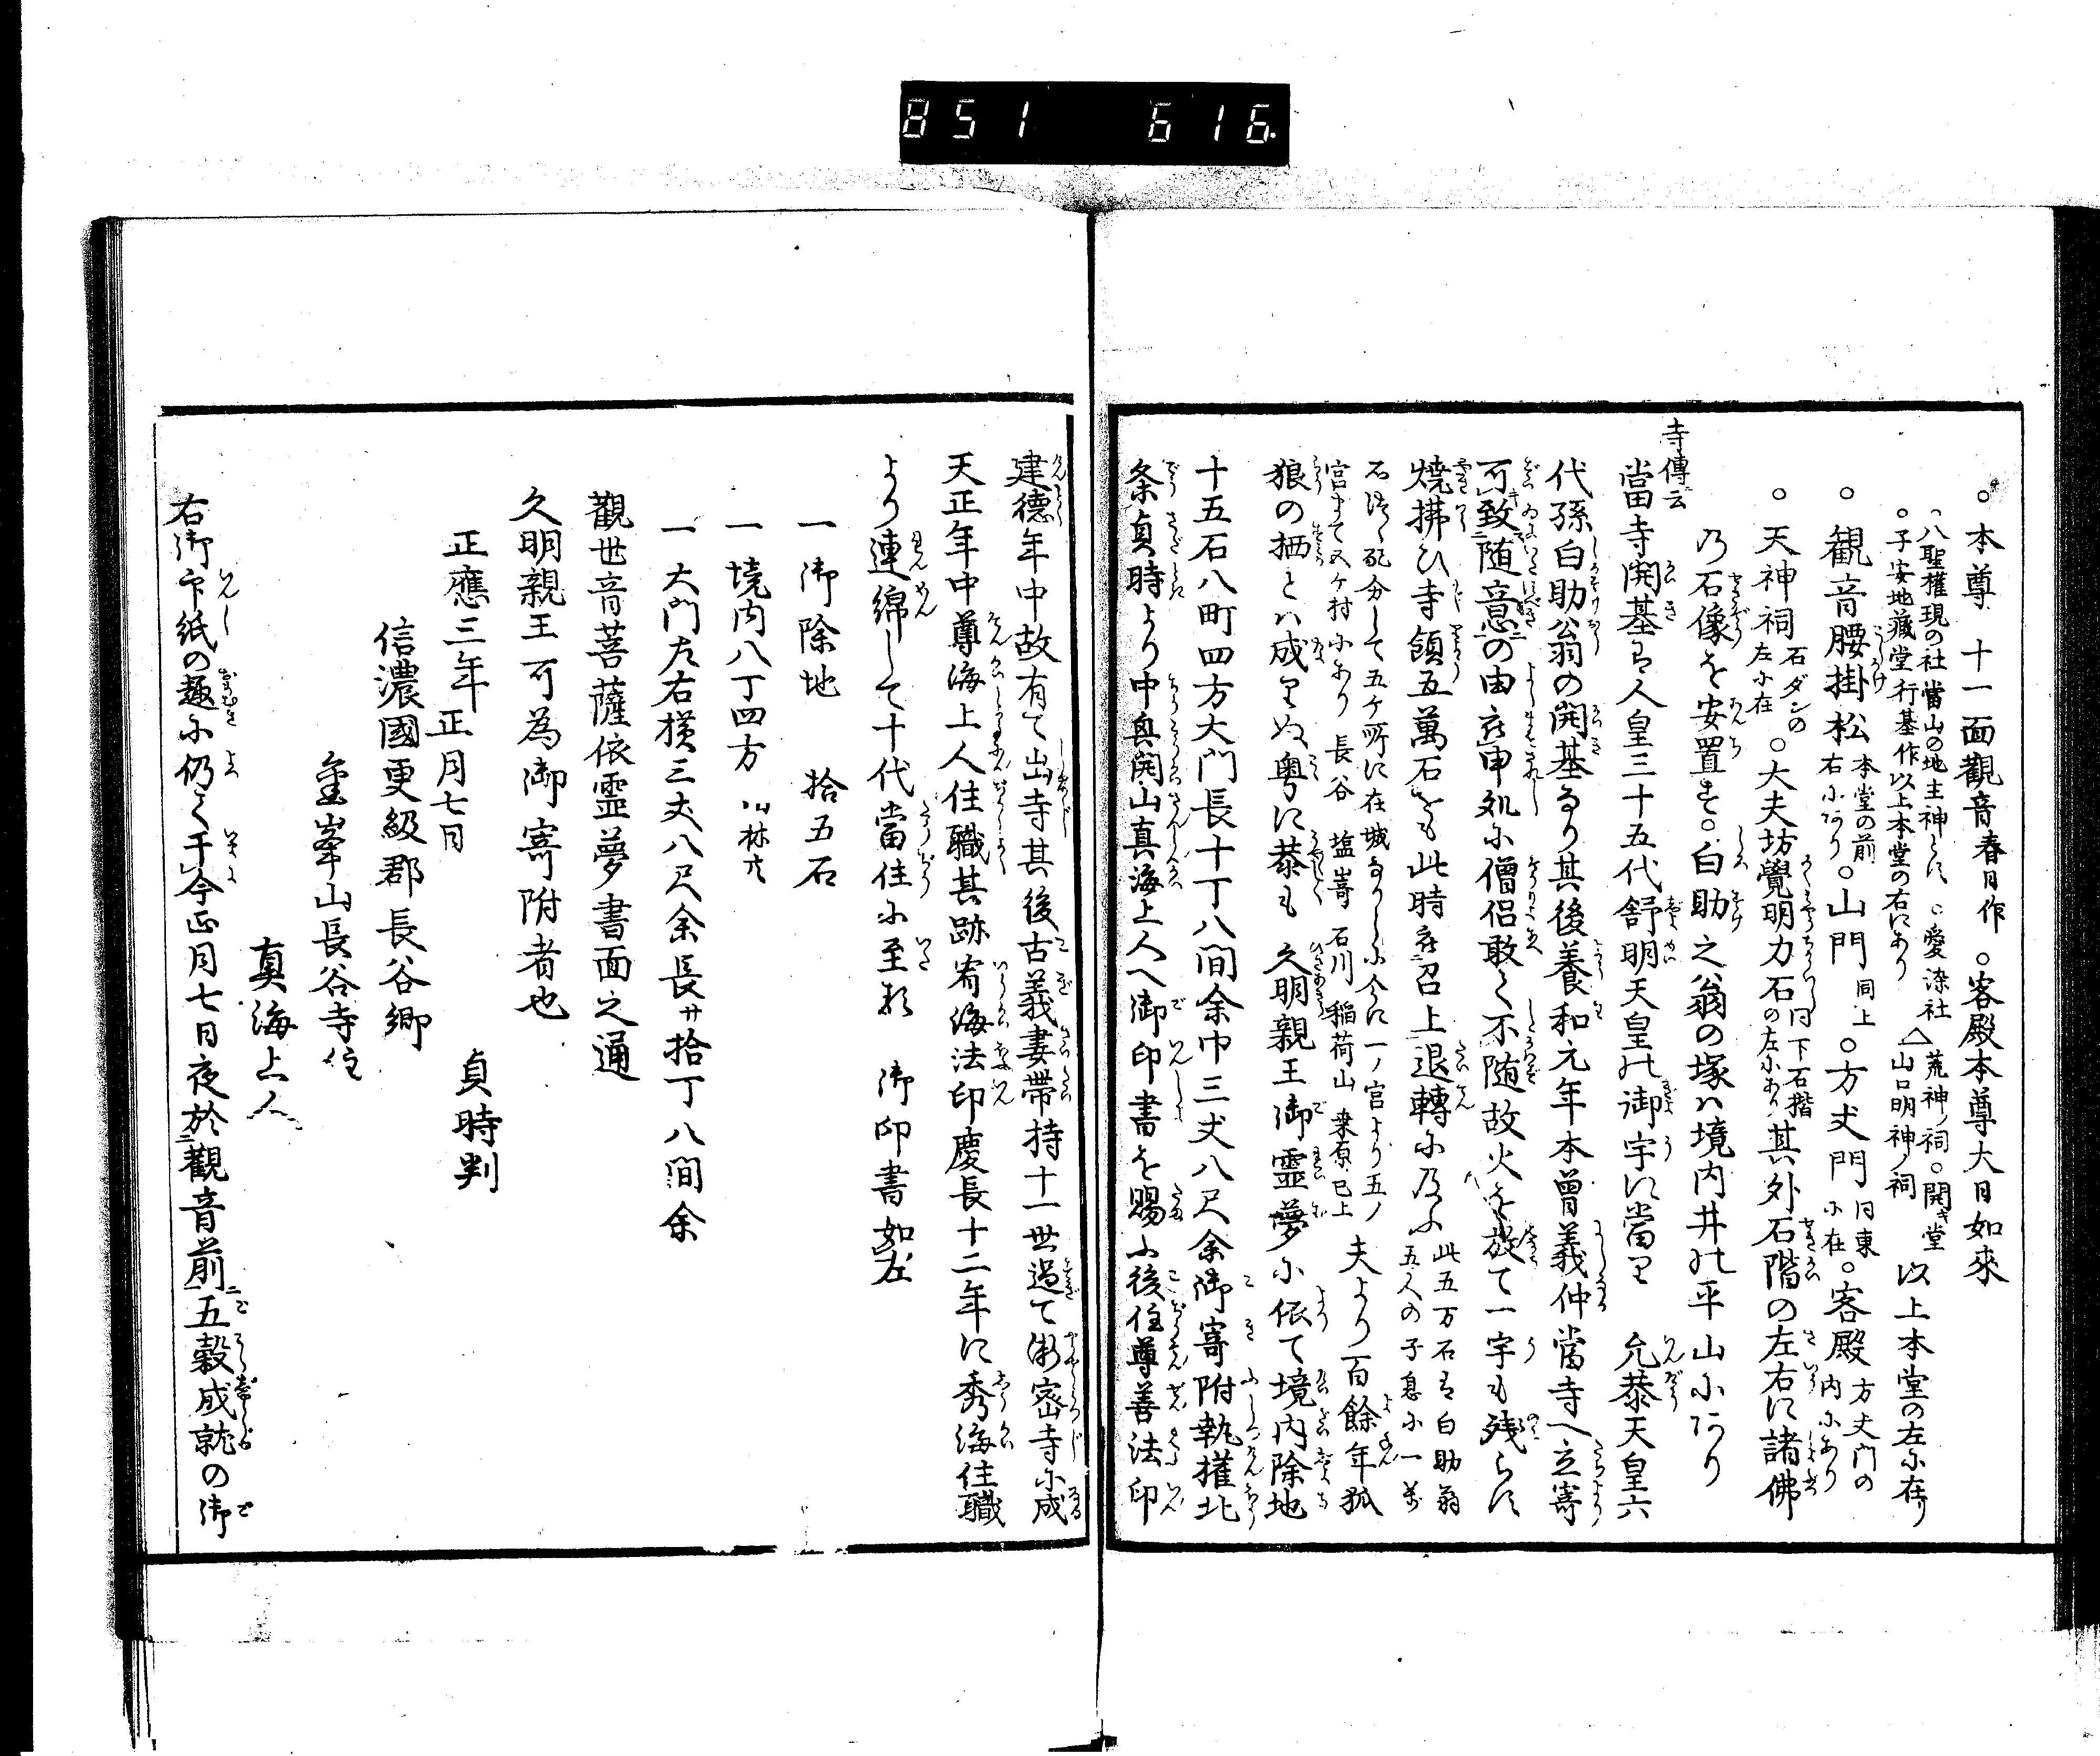 851 616.
○本尊 十一面觀音 春日作 ○客殿本尊大日如來
○八聖權現の社 當山の地主神とす ○愛染社 △荒神ノ祠 ○開キ堂
○子安地藏堂 行基作 以上本堂の右にあり 山口明神ノ祠 以上本堂の左に在り
○觀音腰掛松 本堂の前右にあり ○山門 同上 ○方丈門 同東に在 ○客殿 方丈門の内にあり
○天神祠 石ダンの左に在 ○大夫坊覺明力石 同下石楷の左にあり 其外石階の左右に諸佛
乃石像を安置す○白助之翁の塚ハ境内井の平山にあり
寺傳云
當寺開基は人皇三十五代舒明天皇の御宇に當り 允恭天皇六
代孫白助翁の開基なり其後養和元年木曾義仲當寺へ立寄
可致随意の由被申処に僧侶敢て不随故火を放て一宇も残らす
燒拂ひ寺領五萬石をも此時被召上退轉に及ふ 此五万石は白助翁五人の子息に一萬
石つゝ配分して五ケ所に在城なりしに今に一ノ宮より五ノ
宮まて五ケ村にあり 長谷 塩嵜 石川 稲荷山 桒原已上 夫より百餘年狐
狼の栖とハ成りぬ粤に恭も 久明親王御霊夢に依て境内除地
十五石八町四方大門長十丁八間余巾三丈八尺余御寄附執權北
条貞時より中興開山真海上人へ御印書を賜ふ後住尊善法印
建德年中故有て出寺其後古義妻帶持十一世過て渐密寺に成
天正年中尊海上人住職其跡宥海法印慶長十二年に秀海住職
より連綿して十代當住に至ル 御印書如左
一 御除地 拾五石
一 境内八丁四方 山林共
一 大門左右横三丈八尺余長サ拾丁八間余
觀世音菩薩依霊夢書面之通
久明親王可為御寄附者也
正應三年正月七日 貞時判
信濃國更級郡長谷郷
金峯山長谷寺住
真海上人
右御印紙の趣に仍て于今正月七日夜於觀音前五穀成就の御